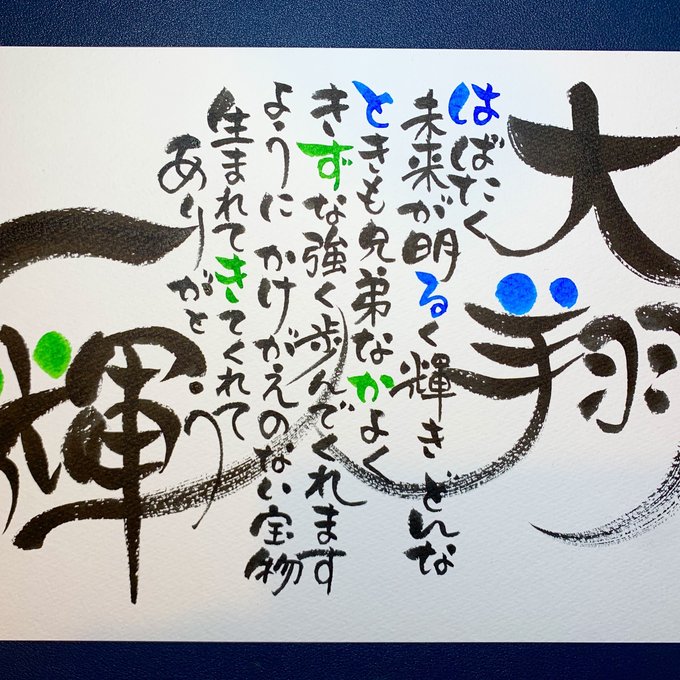 大翔
はばたく
未来が明るく輝き どんな
ときも兄弟なかよく
きずな強く歩んでくれます
ように かけがえのない宝物
生まれてきてくれて
ありがとう
一輝